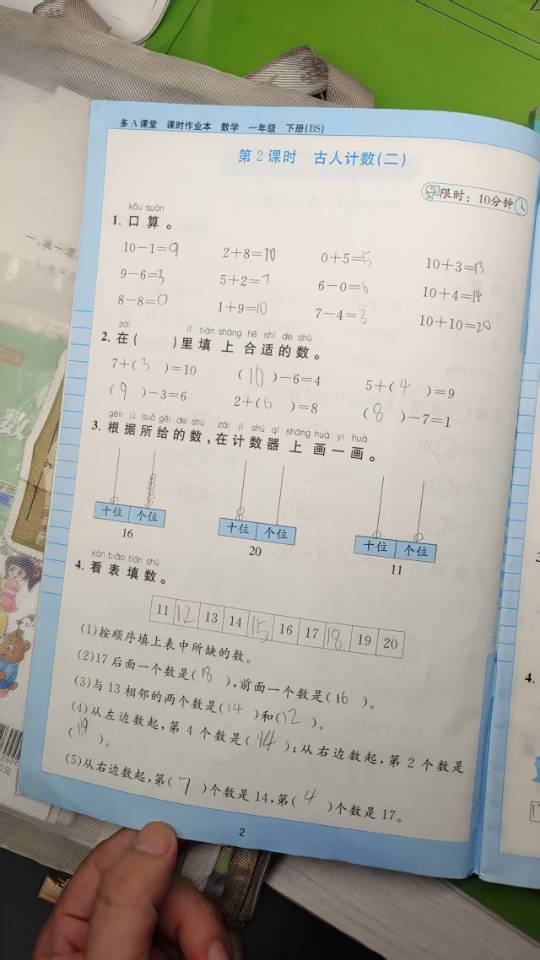 多A课堂 课时作业本 数学 一年级 下册(BS)
第2课时 古人计数(二)
限时：10分钟
kǒu suàn
1. 口算。
10－1=9 2＋8=10 0＋5=5 10＋3=13
9－6=3 5＋2=7 6－0=6 10＋4=14
8－8=0 1＋9=10 7－4=3 10＋10=20
zài lǐ tián shàng hé shì de shù
2. 在( )里填上合适的数。
7＋(3)=10 (10)－6=4 5＋(4)=9
(9)－3=6 2＋(6)=8 (8)－7=1
gēn jù suǒ gěi de shù zài jì shù qì shàng huà yi huà
3. 根据所给的数，在计数器上画一画。
十位 个位 十位 个位 十位 个位
16 20 11
kàn biǎo tián shù
4. 看表填数。
11 12 13 14 15 16 17 18 19 20
(1)按顺序填上表中所缺的数。
(2)17后面一个数是(18)，前面一个数是(16)。
(3)与13相邻的两个数是(14)和(12)。
(4)从左边数起，第4个数是(14)；从右边数起，第2个数是
(19)。
(5)从右边数起，第(7)个数是14，第(4)个数是17。
2
数
4.